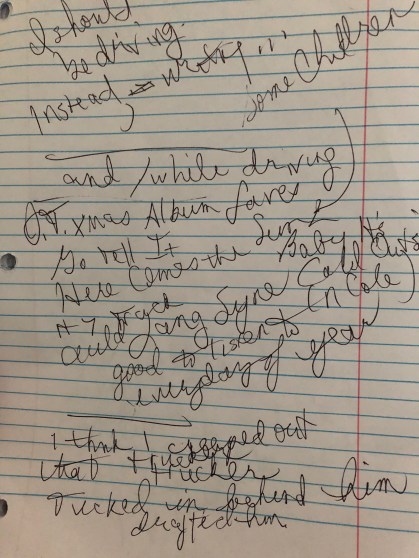 I should
be driving.
Instead, writing...
some Children
and/while driving
O.T. Xmas Album faves
Go Tell It
Here Comes the Sun
Baby It's
Cold Outside
# 7 Track
auld Lang Syne
(N Cole)
good to listen to
everyday of year
I think I creeped out
that trucker
Tucked in behind him
drafted him.